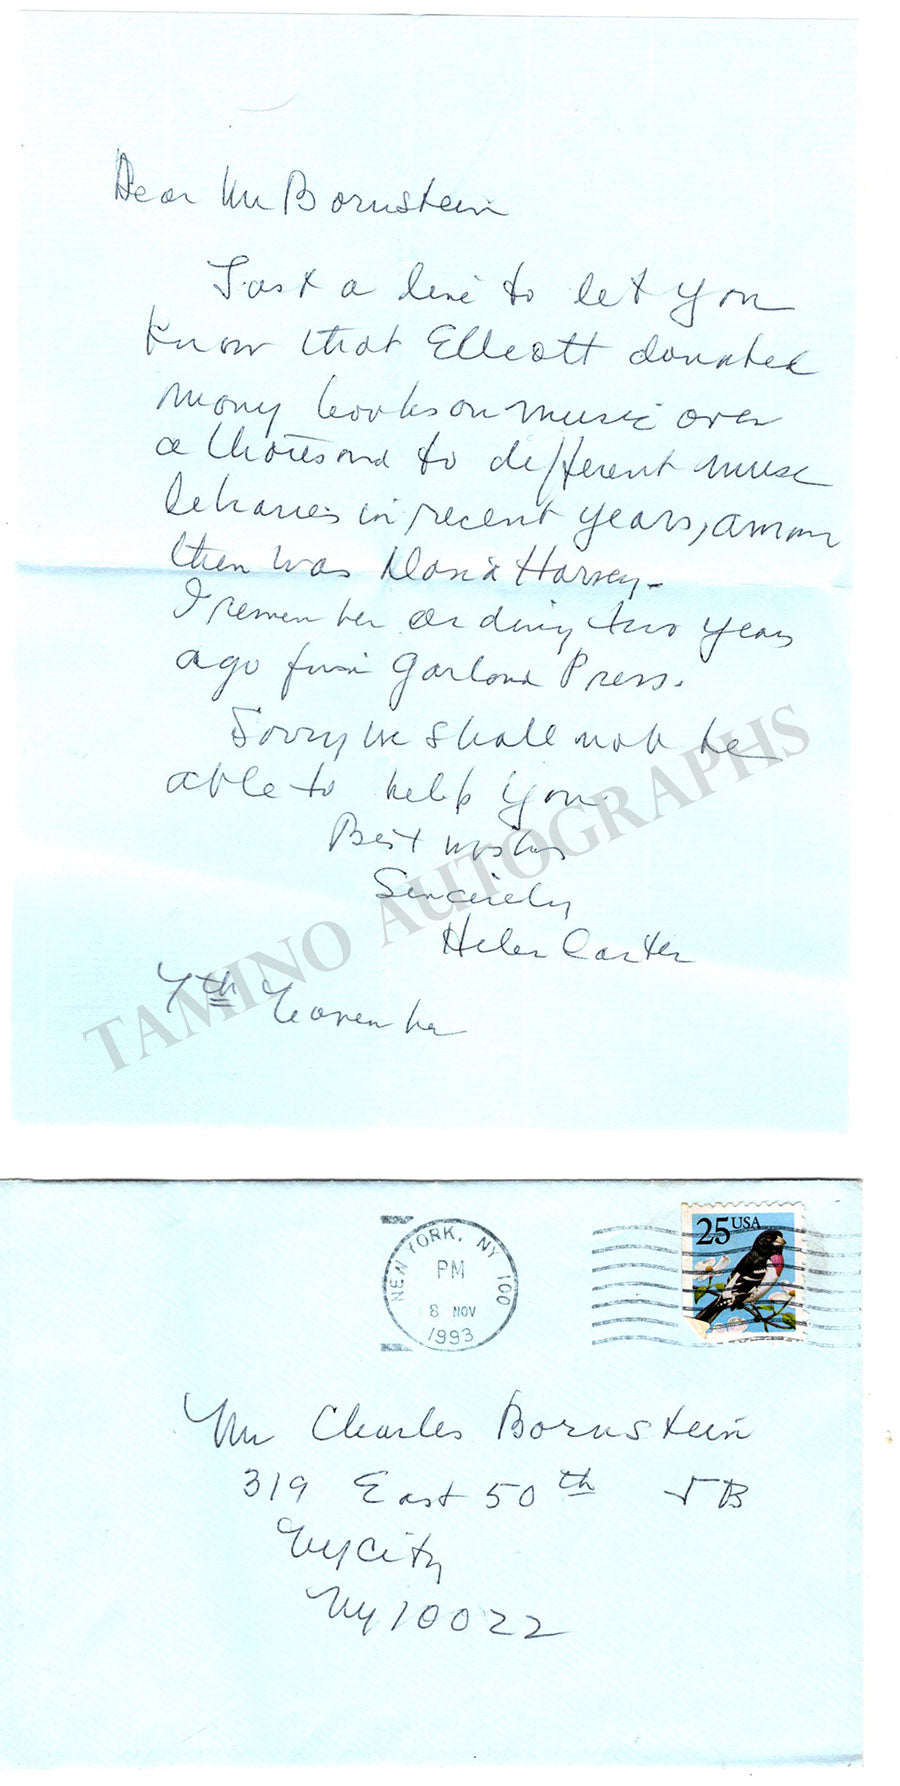 Dear Mr Bornstein
Just a line to let you
know that Elliott donated
many books on music over
a thousand to different music
libraries in recent years, among
them was
I remember ordering two years
ago from Garland Press.
Sorry we shall not be
able to help you.
Best wishes
Sincerely
Helen Carter
7th November
TAMINO AUTOGRAPHS
NEW YORK, NY 100
PM
8 NOV
1993
25 USA
Mr Charles Bornstein
319 East 50th 5B
NYCity
NY 10022